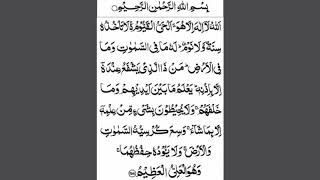 بِسْمِ اللهِ الرَّحْمٰنِ الرَّحِيْمِ
اَللهُ لَاۤ اِلٰهَ اِلَّا هُوَ ۚ اَلْحَیُّ الْقَیُّوْمُ ۚ لَا تَاْخُذُهٗ
سِنَةٌ وَّلَا نَوْمٌ ؕ لَهٗ مَا فِی السَّمٰوٰتِ وَمَا
فِی الْاَرْضِ ؕ مَنْ ذَا الَّذِیْ یَشْفَعُ عِنْدَهٗۤ
اِلَّا بِاِذْنِهٖ ؕ یَعْلَمُ مَا بَیْنَ اَیْدِیْهِمْ وَمَا
خَلْفَهُمْ ۚ وَلَا یُحِیْطُوْنَ بِشَیْءٍ مِّنْ عِلْمِهٖۤ
اِلَّا بِمَا شَآءَ ۚ وَسِعَ كُرْسِیُّهُ السَّمٰوٰتِ
وَالْاَرْضَ ۚ وَلَا یَئُوْدُهٗ حِفْظُهُمَا ۚ
وَهُوَ الْعَلِیُّ الْعَظِیْمُ